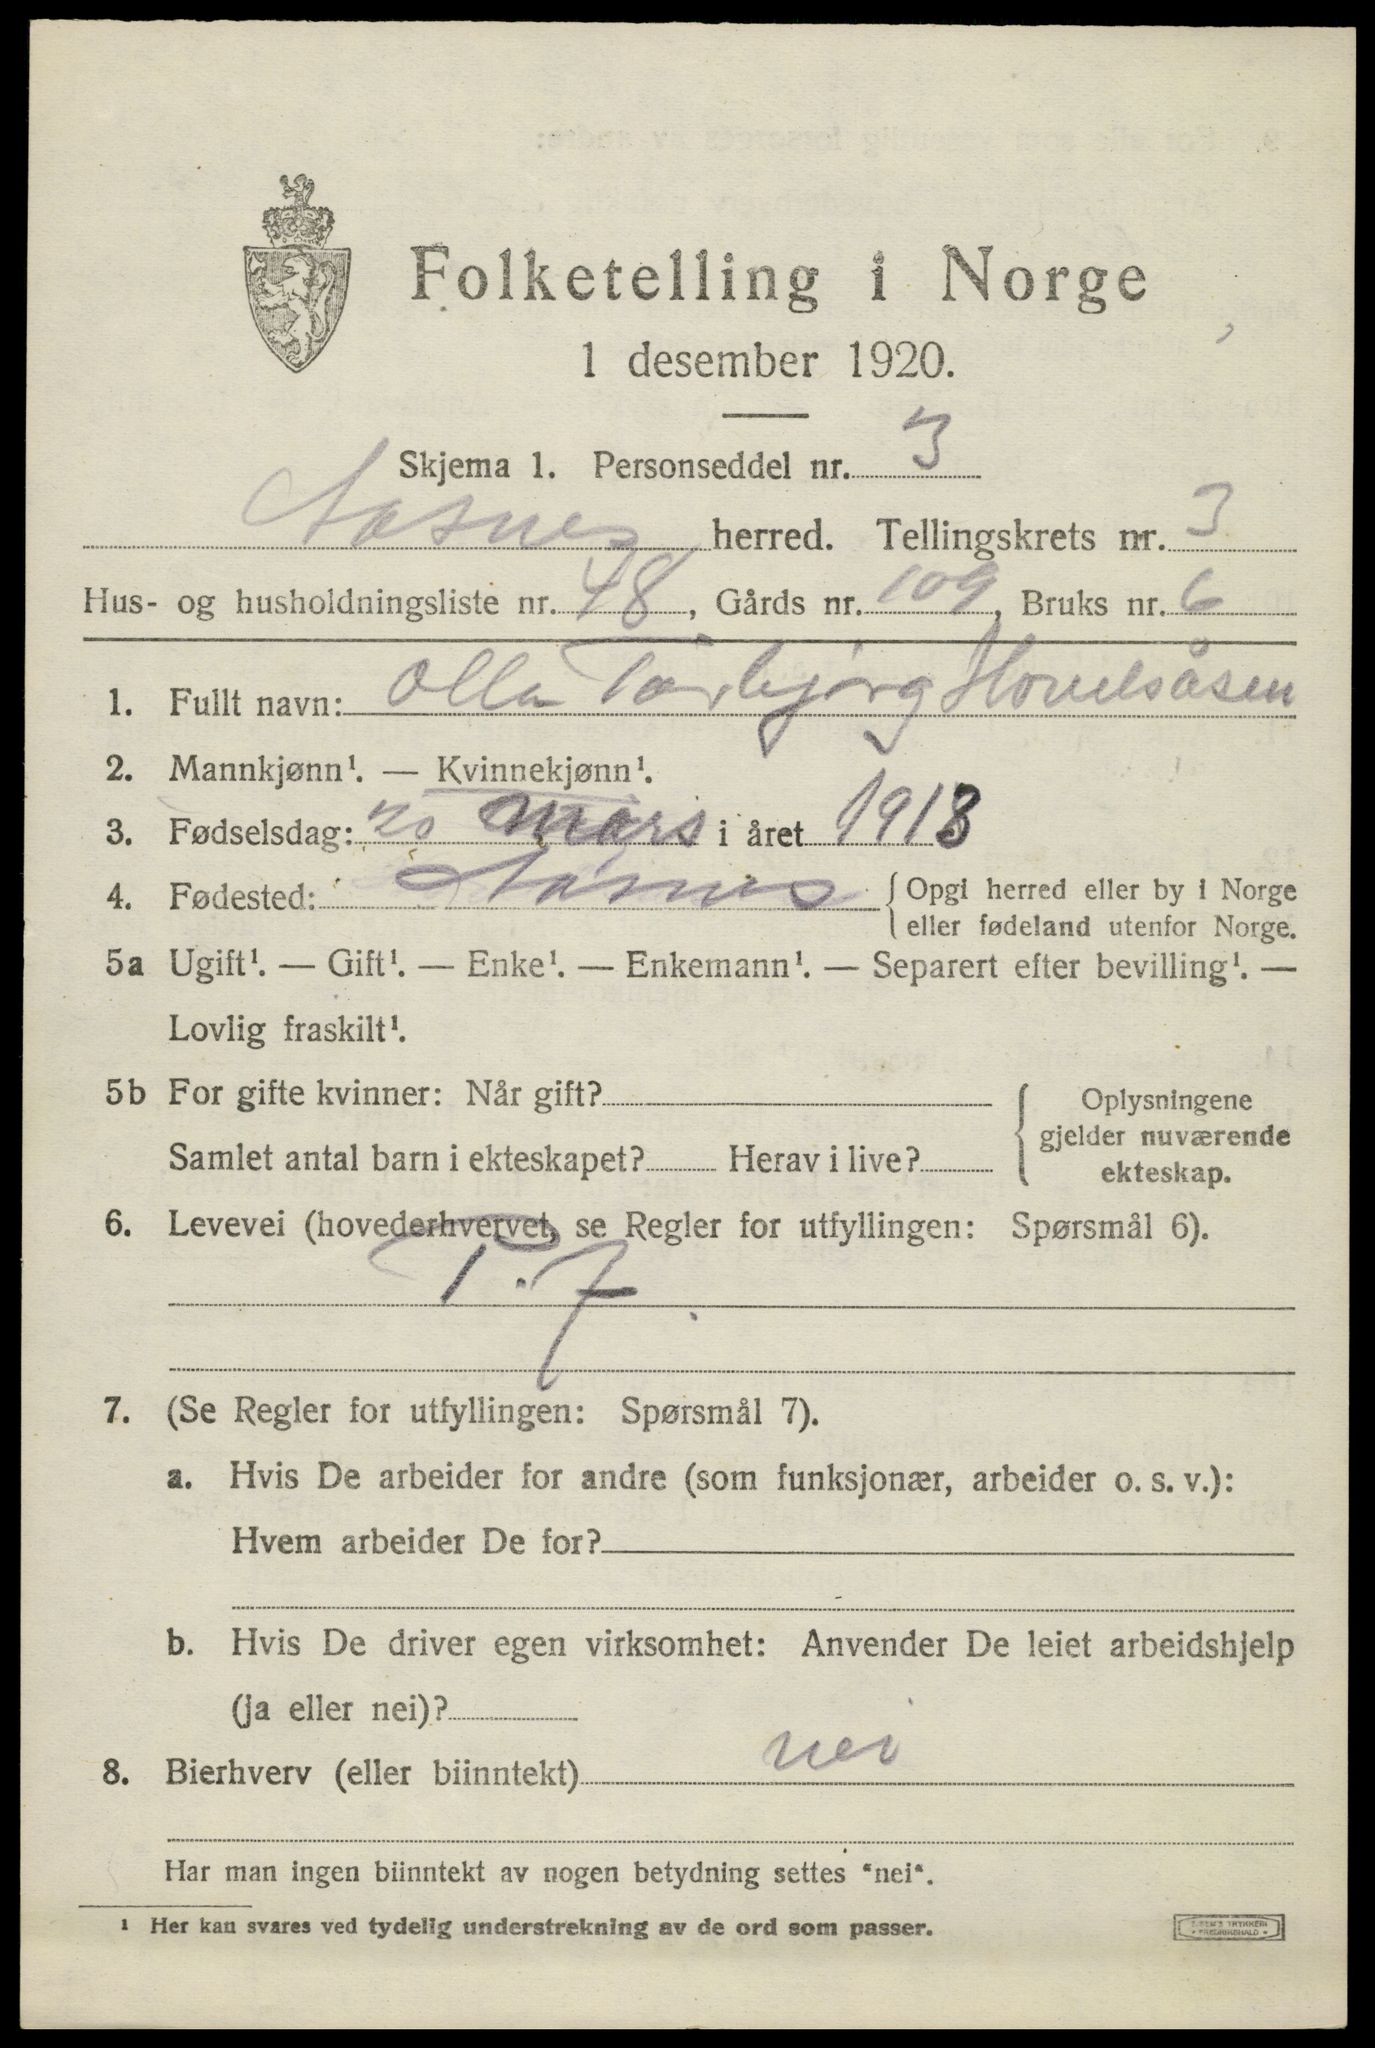 Folketelling i Norge
1 desember 1920.
Skjema 1. Personseddel nr. 3
Aasnes herred. Tellingskrets nr. 3
Hus- og husholdningsliste nr. 48, Gårds nr. 109, Bruks nr. 6
1. Fullt navn: Olla Torbjørg Hovelsåsen
2. Mannkjønn¹. — Kvinnekjønn¹.
3. Fødselsdag: 20 mars i året 1918
4. Fødested: Aasnes { Opgi herred eller by i Norge
eller fødeland utenfor Norge.
5a Ugift¹. — Gift¹. — Enke¹. — Enkemann¹. — Separert efter bevilling¹. —
Lovlig fraskilt¹.
5b For gifte kvinner: Når gift? { Oplysningene
gjelder nuværende
Samlet antal barn i ekteskapet? Herav i live? ekteskap.
6. Levevei (hovederhvervet, se Regler for utfyllingen: Spørsmål 6).
P. 7
7. (Se Regler for utfyllingen: Spørsmål 7).
a. Hvis De arbeider for andre (som funksjonær, arbeider o. s. v.):
Hvem arbeider De for?
b. Hvis De driver egen virksomhet: Anvender De leiet arbeidshjelp
(ja eller nei)?
8. Bierhverv (eller biinntekt) nei
Har man ingen biinntekt av nogen betydning settes "nei".
¹ Her kan svares ved tydelig understrekning av de ord som passer.
TRYKKERI
FREDRIKSHALD